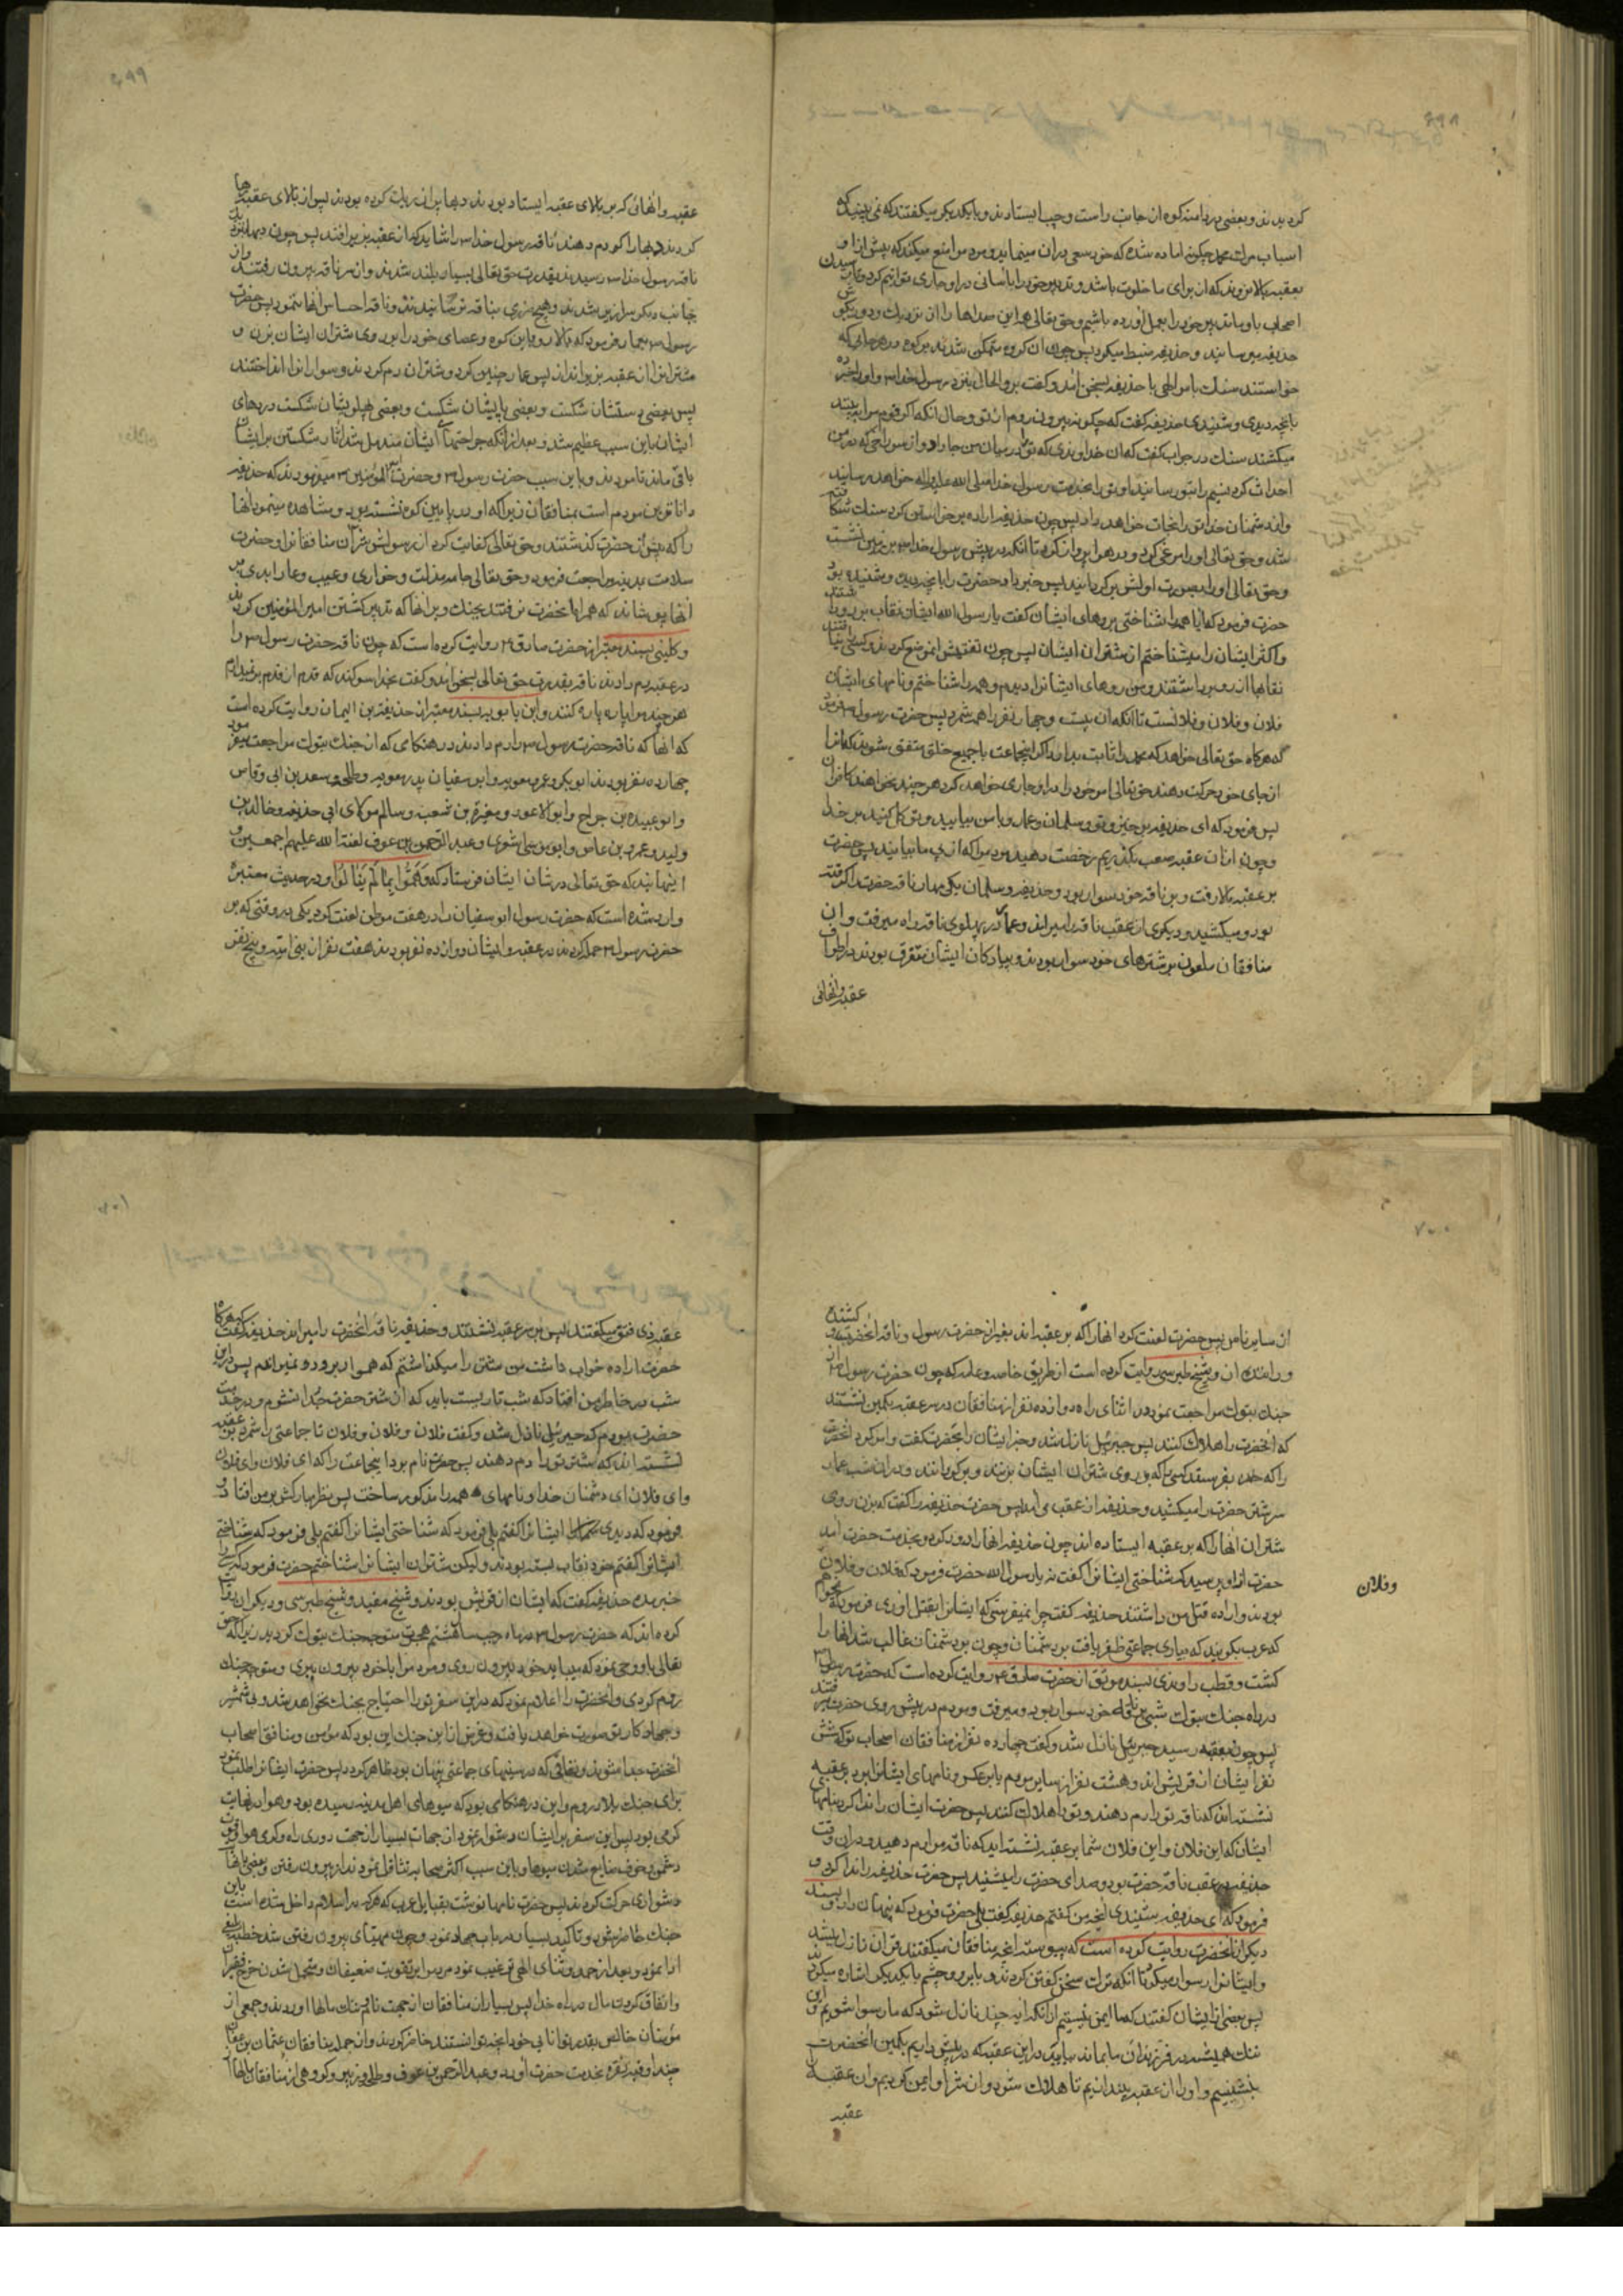 ۶۹۸
کردیدند و بعضی در دامنه کوه از جانب راست و چپ ایستادند و با یکدیکر میکفتند که نمی بینید که
اسباب مرک محمد چکونه اماده شده که خود سعی در ان مینماید و مردم را منع میکند که پیش از او
بعقبه بالا نروند که از برای ما خلوت باشد و تدبیر خود را باسانی در او جاری توانیم کرد و تا رسیدن
اصحاب باو ما تدبیر خود را بعمل آورده باشیم و حق تعالی همه این صداها را از نزدیک و دور بکوش
حذیفه میرسانید و حذیفه ضبط میکرد پس چون ان کروه متمکن شدند بر کوه در هر جائی که
خواستند سنک بامر الهی با حذیفه بسخن امد و کفت برو الحال بنزد رسول خدا ص و او را خبر ده
بانچه دیدی و شنیدی حذیفه کفت که چکونه بیرون روم از تو و حال انکه اکر قوم مرا ببینند
میکشند سنک در جواب کفت که ان خداوندی که تو را در میان من جا داد و از سوراخی که در من
احداث کرد نسیم را بتو رسانید او تو را بخدمت رسول خدا صلی الله علیه و اله خواهد رسانید
و از دشمنان خدا تو را نجات خواهد داد پس چون حذیفه اراده برخواستن کرد سنک شکافته
شد و حق تعالی او را مرغی کرد و در هوا پرواز کرد تا انکه در پیش رسول خدا ص بر زمین نشست
و حق تعالی او را بصورت اولش برکردانید پس خبر داد حضرت را بانچه دیده و شنیده بود
حضرت فرمود که ایا همه را شناختی بروهای ایشان کفت یا رسول الله ایشان نقاب بر رو داشتند
و اکثر ایشان را میشناختم از شتران ایشان پس چون تفتیش انموضع کردند و کسی را نیافتند
نقابها از رو برداشتند و من روهای ایشانرا دیدم و همه را شناختم و نامهای ایشان
فلان و فلان و فلانست تا انکه ان بیست و چهار نفر را همه شمرد پس حضرت رسول ص فرمود
که هرکاه حق تعالی خواهد که محمد را ثابت بدارد اکر اینجماعت با جمیع خلق متفق شوند که او را
از جای خود حرکت دهند حق تعالی امر خود را در او جاری خواهد کرد هر چند نخواهند کافران
پس فرمود که ای حذیفه برخیز و تو و سلمان و عمار و با من بیایید و توکل کنید بر خدا
و چون از ان عقبه صعب بکذریم رخصت دهید مردم را که از پی ما بیایند پس حضرت
بر عقبه بالا رفت و بر ناقه خود سوار بود و حذیفه و سلمان یکی مهار ناقه حضرت را کرفته
بود و میکشید و دیکری از عقب ناقه را میراند و عمار در پهلوی ناقه راه میرفت و ان
منافقان ملعون بر شترهای خود سوار بودند و پیادکان ایشان متفرق بودند در اطراف
عقبه و انهائی
۶۹۹
عقبه و انهائی که بر بالای عقبه ایستاده بودند دبها پر از ریک کرده بودند پس از بالای عقبه رها
کردند دبها را که رم دهند ناقه رسول خدا ص را شاید که از عقبه بزیر افتد پس چون دبها نزدیک
ناقه رسول خدا ص رسیدند بقدرت حق تعالی بسیار بلند شدند و از سر ناقه بیرون رفتند و از
جانب دیکر سرازیر شدند و هیچ ضرری بناقه نرسانیدند و ناقه احساس انها ننمود پس حضرت
رسول ص بعمار فرمود که بالا رو باین کوه و عصای خود را بر روی شتران ایشان بزن و
شترانرا از عقبه بزیر انداز پس عمار چنین کرد و شتران رم کردند و سوارانرا انداختند
پس بعضی دستشان شکست و بعضی پایشان شکست و بعضی پهلویشان شکست و دردهای
ایشان باین سبب عظیم شد و بعد از انکه جراحتهای ایشان مندمل شد اثار شکستن بر ایشان
باقی ماند تا مردند و باین سبب حضرت رسول ص و حضرت امیر المؤمنین ع میفرمودند که حذیفه
داناترین مردم است بمنافقان زیرا که او در پایین کوه نشسته بود و مشاهده مینمود انها
را که پیش از حضرت کذشتند و حق تعالی کفایت کرد از رسولش شر ان منافقانرا و حضرت
سلامت بمدینه مراجعت فرمود و حق تعالی جامه مذلت و خواری و عیب و عار ابدی بر
انها پوشاند که همراه انحضرت نرفتند بجنک و بر انها که تدبیر کشتن امیر المؤمنین کردند
و کلینی بسند معتبر از حضرت صادق ع روایت کرده است که چون ناقه حضرت رسول ص را
در عقبه رم دادند ناقه بقدرت حق تعالی بسخن امد و کفت بخدا سوکند که قدم از قدم بر نمیدارم
هر چند مرا پاره پاره کنند و ابن بابویه بسند معتبر از حذیفه بن الیمان روایت کرده است
که انها که ناقه حضرت رسول ص را رم دادند در هنکامی که از جنک تبوک مراجعت میفرمود
چهارده نفر بودند ابو بکر و عمر و معویه و ابو سفیان پدر معویه و طلحه و سعد بن ابی وقاص
و ابو عبیده بن جراح و ابو الاعور و مغیرة بن شعبه و سالم مولای ابی حذیفه و خالد بن
ولید و عمرو بن عاص و ابو موسی اشعری و عبد الرحمن بن عوف لعنة الله علیهم اجمعین و
اینهایند که حق تعالی در شان ایشان فرستاد که وَهَمُّوا بِمَا لَمْ یَنَالُوا و در حدیث معتبر
وارد شده است که حضرت رسول ابو سفیان را در هفت موطن لعنت کرد یکی در وقتی که بر
حضرت رسول ص حمله کردند در عقبه و ایشان دوازده نفر بودند هفت نفر از بنی امیه و پنج نفر
۷۰۰
از سایر ناس پس حضرت لعنت کرد انها را که بر عقبه اند بغیر از حضرت رسول و ناقه انحضرت و کشنده
و راننده ان و شیخ طبرسی روایت کرده است از طریق خاصه و عامه که چون حضرت رسول ص از
جنک تبوک مراجعت نمود در اثنای راه دوازده نفر از منافقان در سر عقبه بکمین نشستند
که انحضرت را هلاک کنند پس جبرئیل نازل شد و خبر ایشان را بحضرت کفت و امر کرد انحضرت
را که حضرت بفرستد کسی را که بر روی شتران ایشان بزنند و برکردانند و در ان شب عمار
سر شتر حضرت را میکشید و حذیفه از عقب می امد پس حضرت حذیفه را کفت که بزن روی
شتران انها را که بر عقبه ایستاده اند چون حذیفه انها را دور کرد و بخدمت حضرت امد
حضرت از او پرسید که شناختی ایشانرا کفت نه یا رسول الله حضرت فرمود که فلان و فلان
و فلان
بودند و اراده قتل من داشتند حذیفه کفت چرا نمیفرستی که ایشانرا بقتل اوری فرمود که نمیخواهم
که عرب بکویند که بیاری جماعتی ظفر یافت بر دشمنان و چون بر دشمنان غالب شد انها را
کشت و قطب راوندی بسند موثق از حضرت صادق ع روایت کرده است که حضرت رسول ص
در راه جنک تبوک شبی بر ناقه خود سوار بود و میرفت و مردم در پیش روی حضرت میرفتند
پس چون بعقبه رسید جبرئیل نازل شد و کفت چهارده نفر از منافقان اصحاب تو که شش
نفر ایشان از قریش اند و هشت نفر از سایر مردم یا برعکس و نامهای ایشانرا برد بر عقبه
نشسته اند که ناقه تو را رم دهند و تو را هلاک کنند پس حضرت ایشان را ندا کرد بنامهای
ایشان که ای فلان و ای فلان شما بر عقبه نشسته اید که ناقه مرا رم دهید و در ان وقت
حذیفه در عقب ناقه حضرت بود و صدای حضرت را میشنید پس حضرت حذیفه را ندا کرد و
فرمود که ای حذیفه شنیدی انچه من کفتم حذیفه کفت بلی حضرت فرمود که پنهان دار و بسند
دیکر از انحضرت روایت کرده است که پیوسته انچه منافقان میکفتند قران نازل میشد
و ایشانرا رسوا میکرد تا انکه ترک سخن کفتن کردند و بابرو و چشم با یکدیکر اشاره میکردند
پس بعضی از ایشان کفتند که ما ایمن نیستیم از انکه ایه چند نازل شود که ما رسوا شویم و این
ننک همیشه در فرزندان ما بماند بیایید در این عقبه که در پیش داریم بکمین انحضرت
بنشینیم و او را از عقبه بیندازیم تا هلاک شود و از شر او ایمن کردیم و ان عقبه را
عقبه
۷۰۱
عقبه ذی فتق میکفتند پس بر سر عقبه نشستند و حذیفه ناقه انحضرت را میراند حذیفه کفت که هرکاه
حضرت اراده خواب داشت من شتر را میکذاشتم که هموار برود و نمیراندم پس در این
شب در خاطر من افتاد که شب تاریست باید که از شتر حضرت جدا نشوم و در خدمت
حضرت بودم که جبرئیل نازل شد و کفت فلان و فلان و فلان تا جماعتی را شمرد بر عقبه
نشسته اند که شتر تو را رم دهند پس حضرت نام برد اینجماعت را که ای فلان و ای فلان
و ای فلان ای دشمنان خدا و نامهای همه را مذکور ساخت پس نظر مبارکش بر من افتاد
فرمود که دیدی ایشانرا کفتم بلی فرمود که شناختی ایشانرا کفتم بلی فرمود که چون شناختی
ایشانرا کفتم خود نقاب بسته بودند و لیکن شتران ایشانرا شناختم حضرت فرمود که کسی را
خبر مده حذیفه کفت که ایشان از قریش بودند و شیخ مفید و شیخ طبرسی و دیکران روایت
کرده اند که حضرت رسول ص در ماه رجب سال هشتم هجرت متوجه جنک تبوک کردید زیرا که حق
تعالی باو وحی نمود که میباید خود بیرون روی و مردم را با خود بیرون بری و متوجه جنک
روم کردی و انحضرت را اعلام نمود که در این سفر تو را احتیاج بجنک نخواهد شد و بی شمشیر
و جهاد کار تو صورت خواهد یافت و غرض از این جنک این بود که مؤمن و منافق اصحاب
انحضرت جدا شوند و نفاقی که در سینهای جماعتی پنهان بود ظاهر کردد پس حضرت ایشانرا طلب نمود
برای جنک بلاد روم و این در هنکامی بود که میوهای اهل مدینه رسیده بود و هوا در نهایت
کرمی بود پس این سفر بر ایشان دشوار نمود از جهات بسیار از جهت دوری راه و کرمی هوا و قوت
دشمن و خوف ضایع شدن میوها و باین سبب اکثر صحابه تثاقل نمودند از بیرون رفتن و بعضی با نها
دشواری حرکت کردند پس حضرت نامها نوشت بقبایل عرب که هرکه در اسلام داخل شده است باین
جنک حاضر شود و تاکید بسیار در باب جهاد نمود و چون مهیای بیرون رفتن شد خطبه بلیغ
ادا نمود و بعد از حمد و ثنای الهی ترغیب نمود مردم را بر تقویت ضعیفان و متحمل شدن خرج فقرا
و انفاق کردن مال در راه خدا پس بسیاری از منافقان از جهت نام و ننک مالها اوردند و جمعی از
مؤمنان خالص بقدر توانایی خود انچه توانستند حاضر کردند و از جمله منافقان عثمان بن عفان
چند اوقیه نقره بخدمت حضرت اورد و عبد الرحمن بن عوف و طلحه و زبیر و کروهی از منافقان مالها